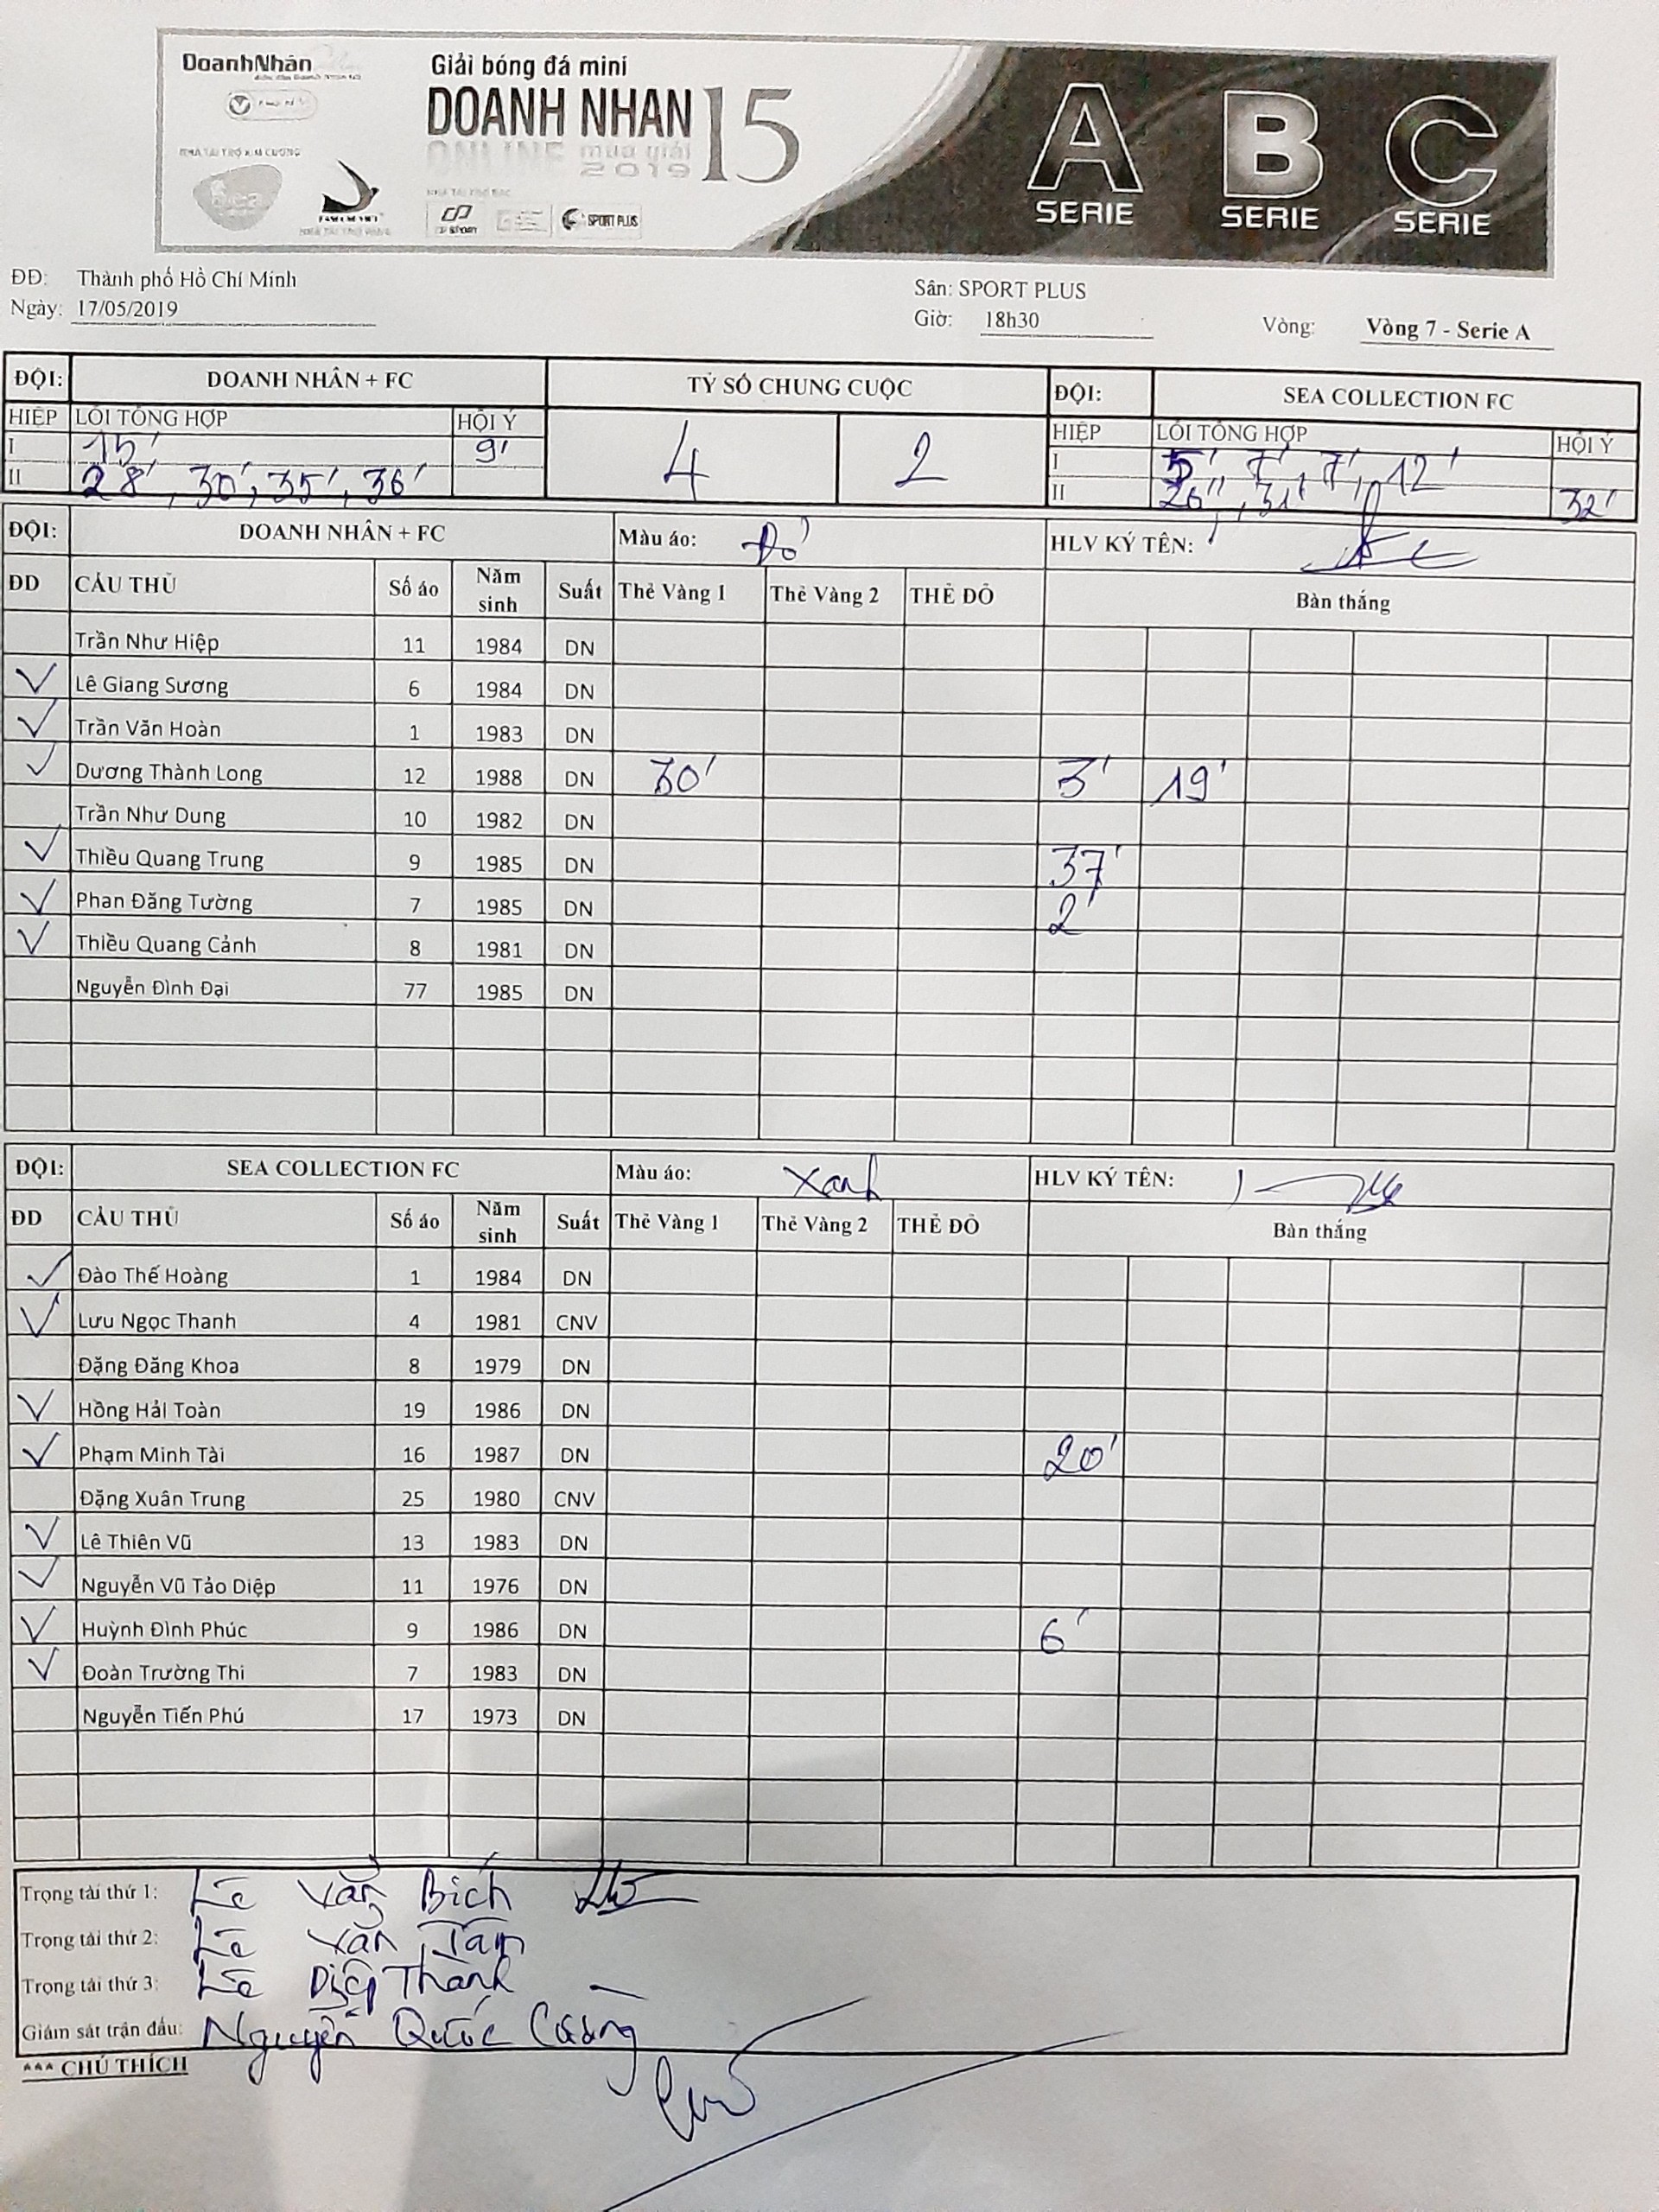 DoanhNhân
Giải bóng đá mini
DOANH NHAN 15
ONLINE mùa giải
2019
NHÀ TÀI TRỢ KIM CƯƠNG
SPORT PLUS
A SERIE B SERIE C SERIE
ĐĐ: Thành phố Hồ Chí Minh
Sân: SPORT PLUS
Ngày: 17/05/2019
Giờ: 18h30 Vòng: Vòng 7 - Serie A
ĐỘI: DOANH NHÂN + FC TỶ SỐ CHUNG CUỘC ĐỘI: SEA COLLECTION FC
HIỆP LỖI TỔNG HỢP HỘI Ý 4 2 HIỆP LỖI TỔNG HỢP HỘI Ý
I 15' 9' I 5', 7', 7', 12'
II 28', 30', 35', 36' II 26', 31' 32'
ĐỘI: DOANH NHÂN + FC Màu áo: Đỏ HLV KÝ TÊN:
ĐD CẦU THỦ Số áo Năm sinh Suất Thẻ Vàng 1 Thẻ Vàng 2 THẺ ĐỎ Bàn thắng
Trần Như Hiệp 11 1984 DN
Lê Giang Sương 6 1984 DN
Trần Văn Hoàn 1 1983 DN
Dương Thành Long 12 1988 DN 30' 3' 19'
Trần Như Dung 10 1982 DN
Thiều Quang Trung 9 1985 DN 37'
Phan Đăng Tường 7 1985 DN 2'
Thiều Quang Cảnh 8 1981 DN
Nguyễn Đình Đại 77 1985 DN
ĐỘI: SEA COLLECTION FC Màu áo: Xanh HLV KÝ TÊN:
ĐD CẦU THỦ Số áo Năm sinh Suất Thẻ Vàng 1 Thẻ Vàng 2 THẺ ĐỎ Bàn thắng
Đào Thế Hoàng 1 1984 DN
Lưu Ngọc Thanh 4 1981 CNV
Đặng Đăng Khoa 8 1979 DN
Hồng Hải Toàn 19 1986 DN
Phạm Minh Tài 16 1987 DN 20'
Đặng Xuân Trung 25 1980 CNV
Lê Thiên Vũ 13 1983 DN
Nguyễn Vũ Tảo Diệp 11 1976 DN
Huỳnh Đình Phúc 9 1986 DN 6'
Đoàn Trường Thi 7 1983 DN
Nguyễn Tiến Phú 17 1973 DN
Trọng tài thứ 1: Lê Văn Bích
Trọng tài thứ 2: Lê Văn Tâm
Trọng tài thứ 3: Lê Diệp Thành
Giám sát trận đấu: Nguyễn Quốc Cường
*** CHÚ THÍCH